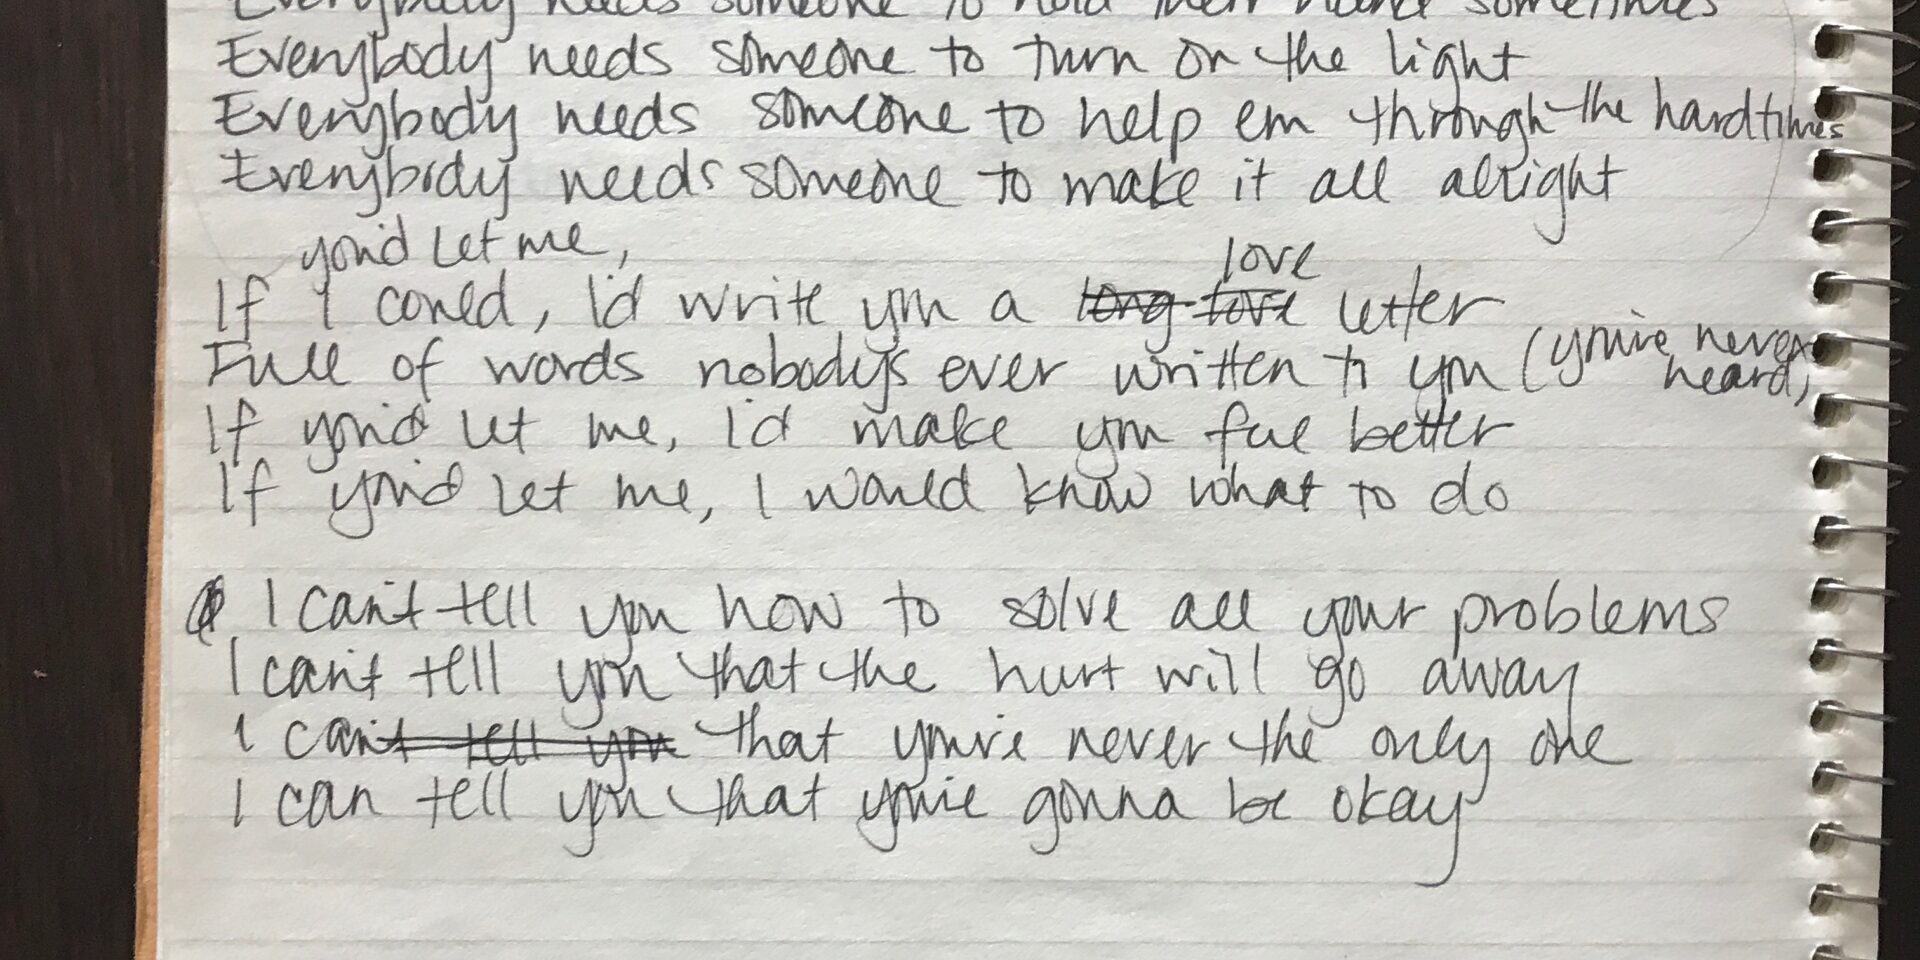 Everybody needs someone to hold their hand sometimes
Everybody needs someone to turn on the light
Everybody needs someone to help em through the hardtimes
Everybody needs someone to make it all alright
you'd let me,
love
If I could, I'd write you a long love letter
Full of words nobody's ever written to you (you've never
heard)
If you'd let me, I'd make you feel better
If you'd let me, I would know what to do
I can't tell you how to solve all your problems
I can't tell you that the hurt will go away
I can't tell you that you're never the only one
I can tell you that you're gonna be okay